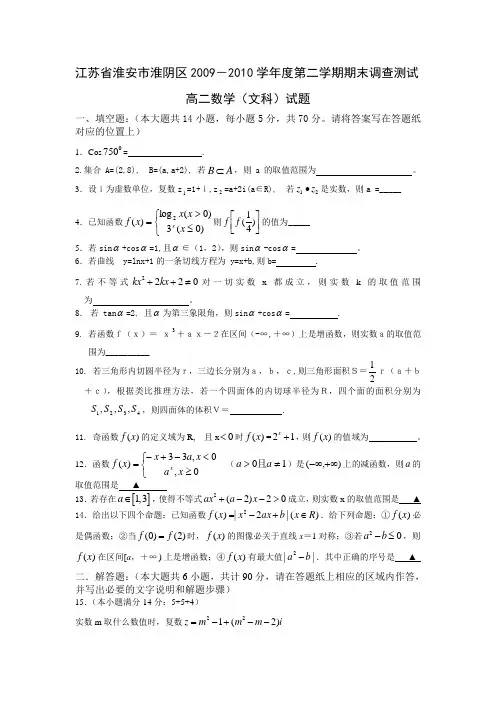 江苏省淮安市淮阴区2009－2010学年度第二学期期末调查测试
高二数学（文科）试题
一、填空题：（本大题共14小题，每小题5分，共70分。请将答案写在答题纸
对应的位置上）
1．Cos 750⁰ = .
2.集合 A=(2,8), B=(a,a+2), 若 B⊂A，则 a 的取值范围为 。
3．设i为虚数单位，复数z₁=1+i,z₂=a+2i(a∈R), 若 z₁•z₂ 是实数，则a =_____
4．已知函数 f(x)={log₂x(x>0) 3ˣ(x≤0) 则 f[f(1/4)] 的值为_____
5．若sinα+cosα=1,且α∈(1，2)，则sinα-cosα= 。
6．若曲线 y=lnx+1的一条切线方程为 y=x+b,则b= .
7. 若不等式 kx²+2kx+2≠0 对一切实数 x 都成立，则实数 k 的取值范围
为 。
8． 若 tanα=2, 且α为第三象限角，则sinα+cosα= .
9. 若函数f（x）＝ x³＋ax－2在区间(-∞,＋∞)上是增函数，则实数a的取值范
围为__________
10. 若三角形内切圆半径为r，三边长分别为a，b，c,则三角形面积S＝1/2 r（a＋b
＋c），根据类比推理方法，若一个四面体的内切球半径为R，四个面的面积分别为
S₁,S₂,S₃,S₄，则四面体的体积V＝ .
11. 奇函数 f(x) 的定义域为R, 且x<0时 f(x)=2ˣ+1，则 f(x) 的值域为 。
12．函数 f(x)={−x+3−3a,x<0 aˣ,x≥0 （a>0且a≠1）是(−∞,+∞)上的减函数，则a的
取值范围是 ▲
13.若存在 a∈[1,3]，使得不等式 ax²+(a−2)x−2>0 成立，则实数x的取值范围是 ▲
14．给出以下四个命题：已知函数 f(x)=|x²−2ax+b|(x∈R)．给下列命题：① f(x) 必
是偶函数；②当 f(0)=f(2) 时，f(x) 的图像必关于直线x＝1对称；③若 a²−b≤0，则
f(x) 在区间[a，＋∞)上是增函数；④ f(x) 有最大值|a²−b|．其中正确的序号是 ▲
二．解答题：（本大题共 6 小题，共计 90 分，请在答题纸上相应的区域内作答，
并写出必要的文字说明和解题步骤）
15．（本小题满分14分；5+5+4）
实数m取什么数值时，复数 z=m²−1+(m²−m−2)i